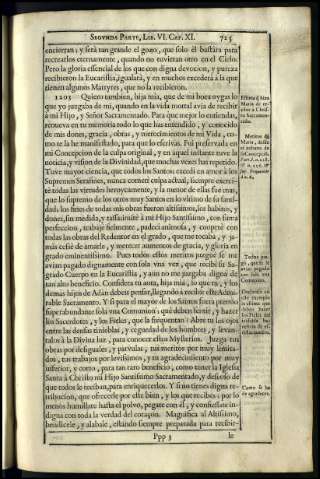 SEGVNDA PARTE, LIB. VI. CAP. XI. 725
encierran: y será tan grande el gozo, que solo él bastára para
recrearlos eternamente, quando no tuvieran otro en el Cielo.
Pero la gloria essencial de los que con digna devocion, y pureza
recibieron la Eucaristia, igualará, y en muchos excederá à la que
tienen algunos Martyres, que no la recibieron.
1203 Quiero tambien, hija mia, que de mi boca oygas lo
que yo juzgaba de mi, quando en la vida mortal avia de recibir
à mi Hijo, y Señor Sacramentado. Para que mejor lo entiendas,
renueva en tu memoria todo lo que has entendido, y conocido
de mis dones, gracia, obras, y merecimientos de mi Vida, co-
mo te la he manifestado, para que lo escrivas. Fui preservada en
mi Concepcion de la culpa original, y en aquel instante tuve la
noticia, y vision de la Divinidad, que muchas vezes has repetido.
Tuve mayor ciencia, que todos los Santos: excedì en amor à los
Supremos Serafines, nunca cometì culpa actual, siempre exercité
todas las virtudes heroycamente, y la menor de ellas fue mas,
que lo supremo de los otros muy Santos en lo vltimo de su santi-
dad: los fines de todas mis obras fueron altissimos, los habitos, y
dones, sin medida, y tassa: imité à mi Hijo Santissimo, con suma
perfeccion, trabajé fielmente, padecì animosa, y cooperé con
todas las obras del Redentor en el grado, que me tocaba, y ja-
más cessé de amarle, y merecer aumentos de gracia, y gloria en
grado eminentissimo. Pues todos estos meritos juzgué se me
avian pagado dignamente con sola vna vez, que recibì su Sa-
grado Cuerpo en la Eucaristia, y aun no me juzgaba digna de
tan alto beneficio. Considera tu aora, hija mia, lo que tu, y los
demás hijos de Adán debeis pensar, llegando à recibir este Admi-
rable Sacramento. Y si para el mayor de los Santos fuera premio
superabundante sola vna Comunion: què deben sentir, y hazer
los Sacerdotes, y los Fieles, que la frequentan? Abre tu los ojos
entre las densas tinieblas, y ceguedad de los hombres, y levan-
talos à la Divina luz, para conocer estos Mysterios. Juzga tus
obras por desiguales, y parvulas; tus meritos por muy limita-
dos, tus trabajos por levissimos, y tu agradecimiento por muy
inferior, y corto, para tan raro beneficio, como tener la Iglesia
Santa à Christo mi Hijo Santissimo Sacramentado, y deseoso de
que todos le reciban, para enriquecerlos. Y si no tienes digna re-
tribucion, que ofrecerle por este bien, y los que recibes: por lo
menos humillate hasta el polvo, pegate con él, y confiessate in-
digna con toda la verdad del coraçon. Magnifica al Altissimo,
bendicele, y alabale, estando siempre preparada para recibir-
Ppp 3 le